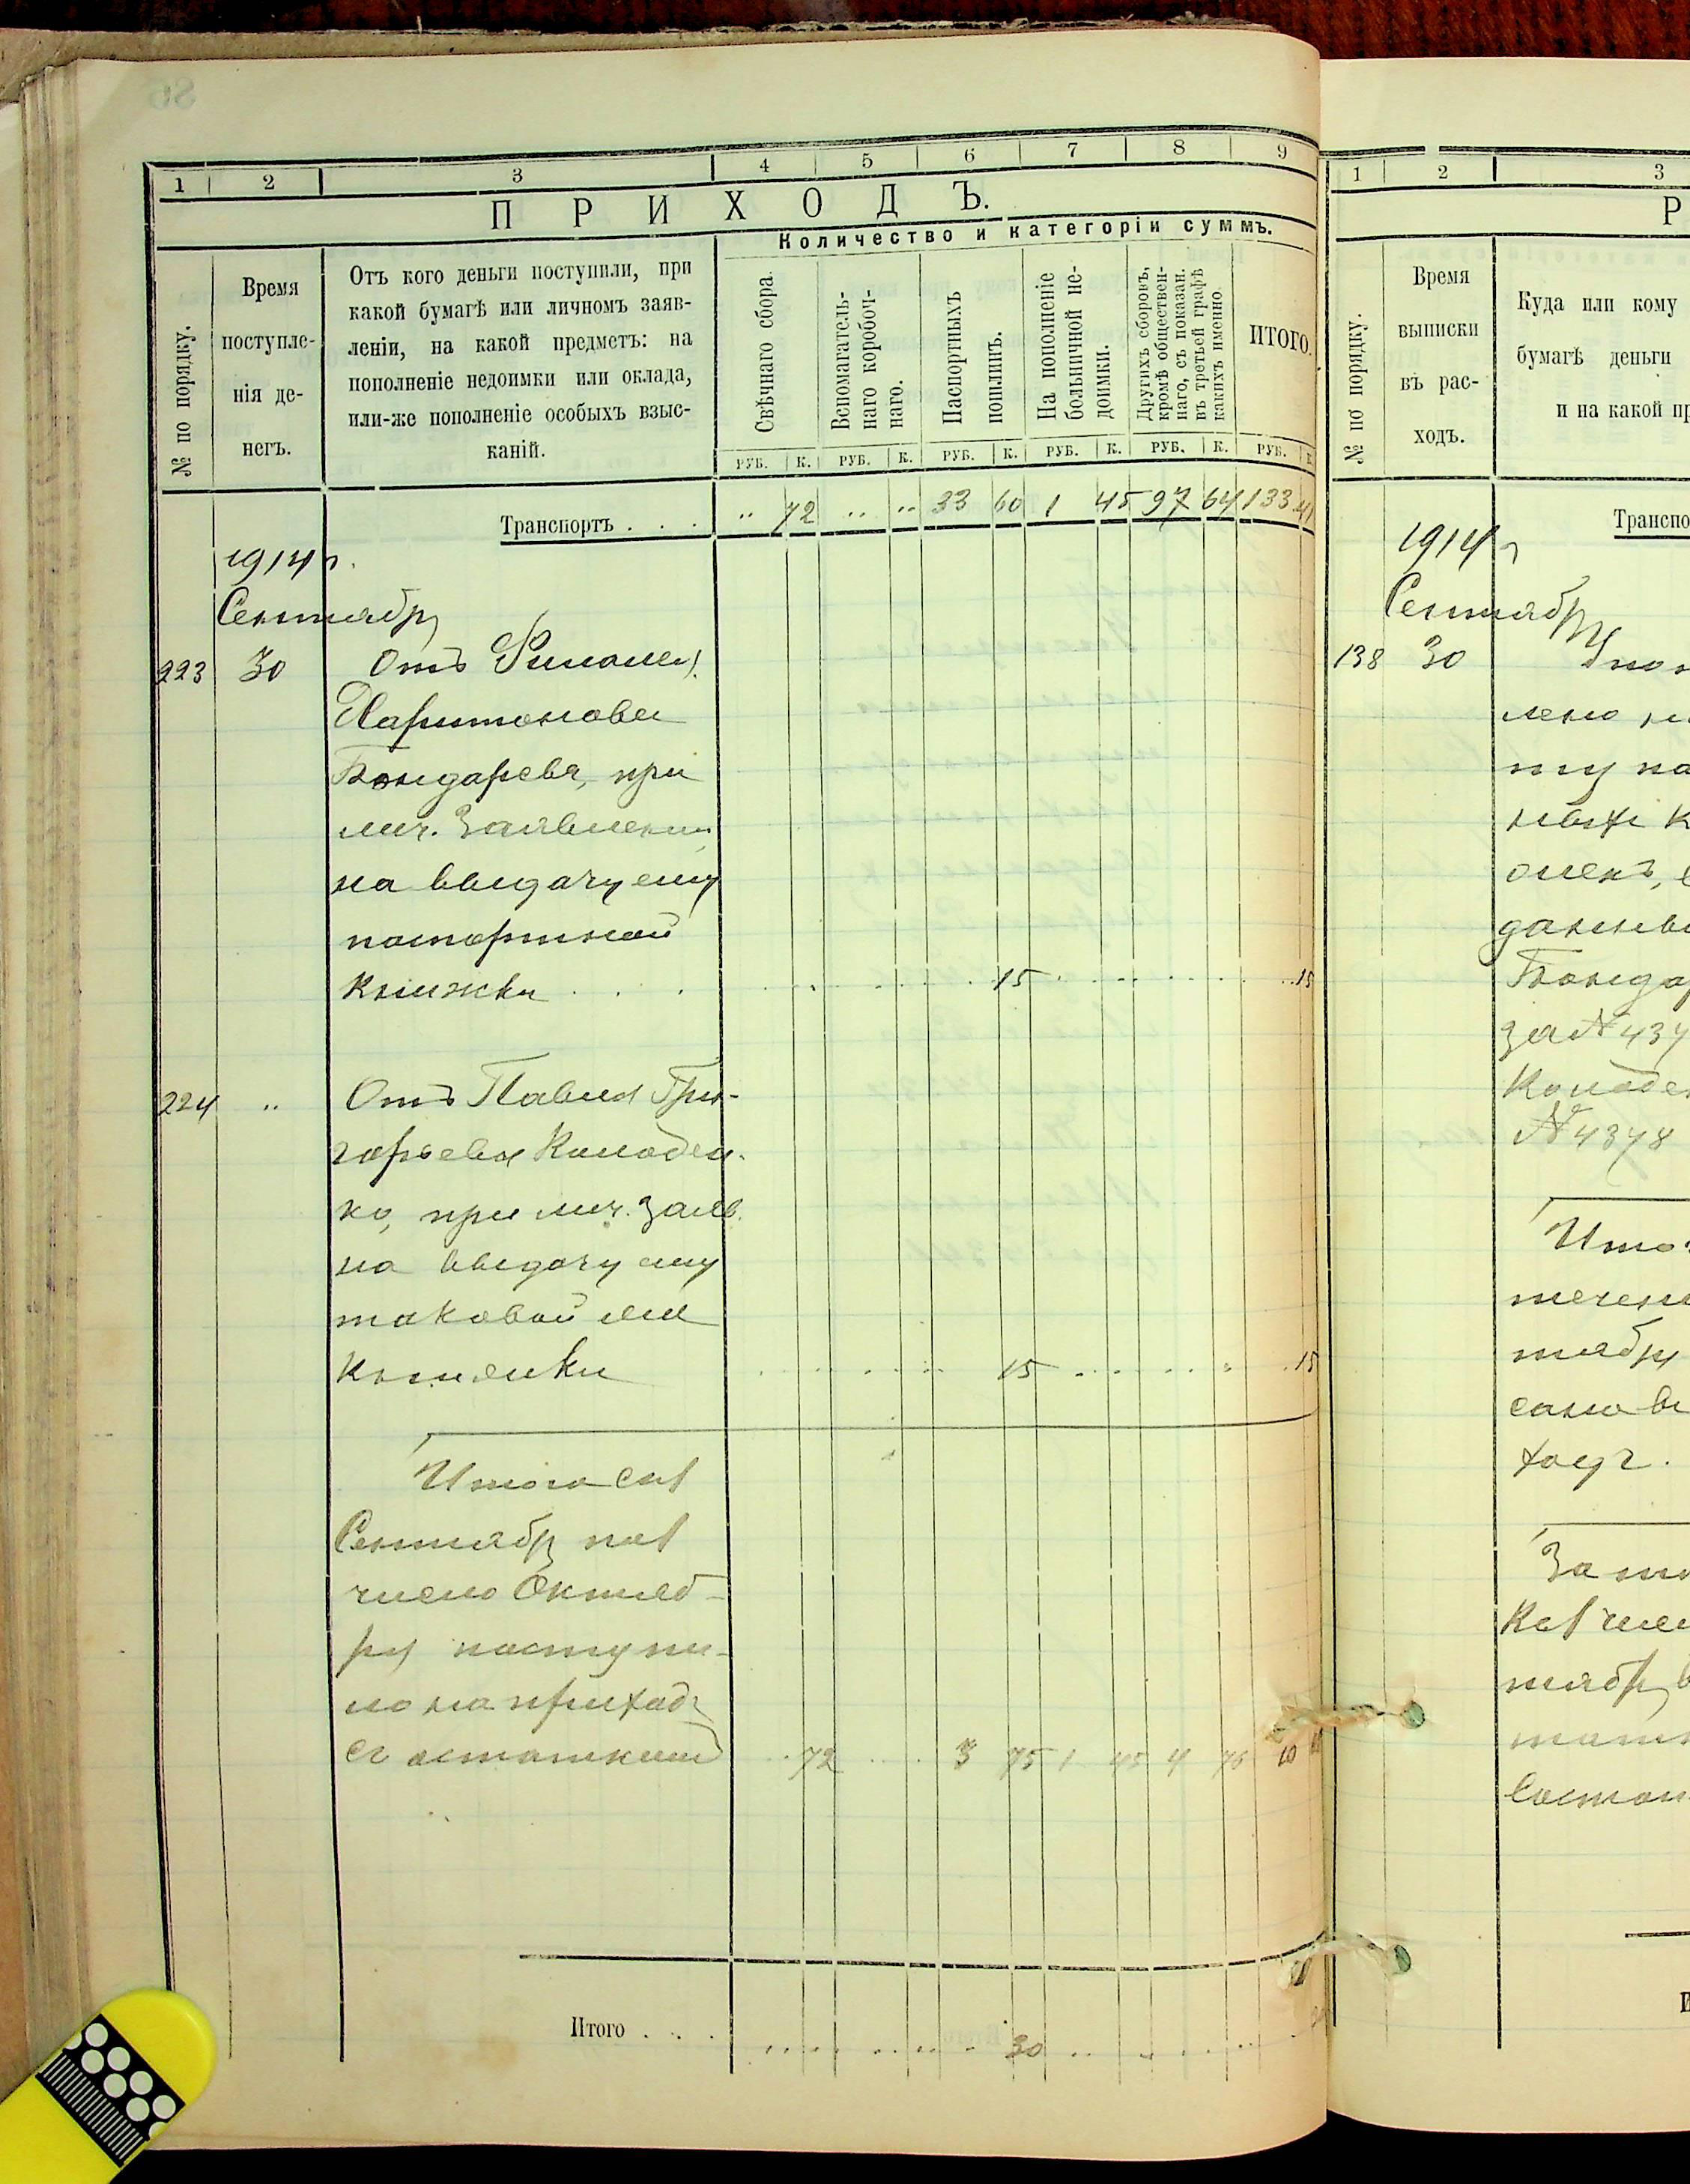 1 2 3 4 5 6 7 8 9
ПРИХОДЪ.
Количество и категоріи суммъ.
№ по порядку.
Время
поступле-
нія де-
негъ.
Отъ кого деньги поступили, при
какой бумагѣ или личномъ заяв-
леніи, на какой предметъ: на
пополненіе недоимки или оклада,
или-же пополненіе особыхъ взыс-
каній.
Свѣчнаго сбора.
Вспомагатель-
наго коробоч-
наго.
Паспортныхъ
пошлинъ.
На пополненіе
больничной не-
доимки.
Другихъ сборовъ,
кромѣ обществен-
наго, съ показан.
въ третьей графѣ
какихъ именно.
ИТОГО.
РУБ. К. РУБ. К. РУБ. К. РУБ. К. РУБ. К. РУБ. К
Транспортъ . . . " 72 " " 33 60 1 45 97 64 133 41
1914 г.
Сентябр
223 30 Отъ
Харитонова
Бондарева, при
лич. Заявлении
на выдачу ему
паспортной
книжки . . . 15 15
224 " Отъ Павла Гри-
горьева Колоден-
ко, при лич. заяв.
на выдачу ему
таковой же
книжки 15 15
Итого
Сентябр
число Октяб-
ря поступи-
ло на приход
с остатками 72 3 75 1 45 4 76 10
Итого . . . 30
1 2 3
Р
№ по порядку.
Время
выписки
въ рас-
ходъ.
Куда или кому
бумагѣ деньги
и на какой пр
Транспо
1914 г
Сентябр
138 30
лено
ту
данны
Бондар
за № 437
Колоден
№ 4378
Итог
течен
тябр
ход
За
тябр
Состои